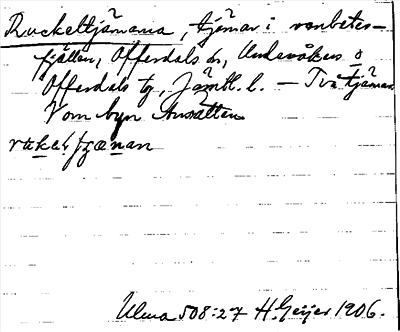 Ruckeltjärnarna, tjärnar i
fjällen, Offerdals sn, Undersåkers o
Offerdals tg, Jämtl. l. – Två tjärnar
byn Ansätten
Ulma 508:27 H. Geijer 1906.